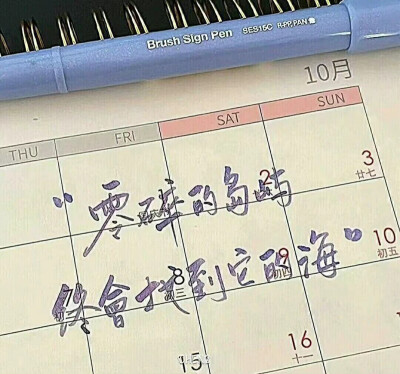 Brush Sign Pen SES15C P.PP.PAN
10月
THU FRI SAT SUN
2 3
廿七
“零碎的岛屿
8 9 10
初三 初四 初五
终會找到它的海”
15 16
十一